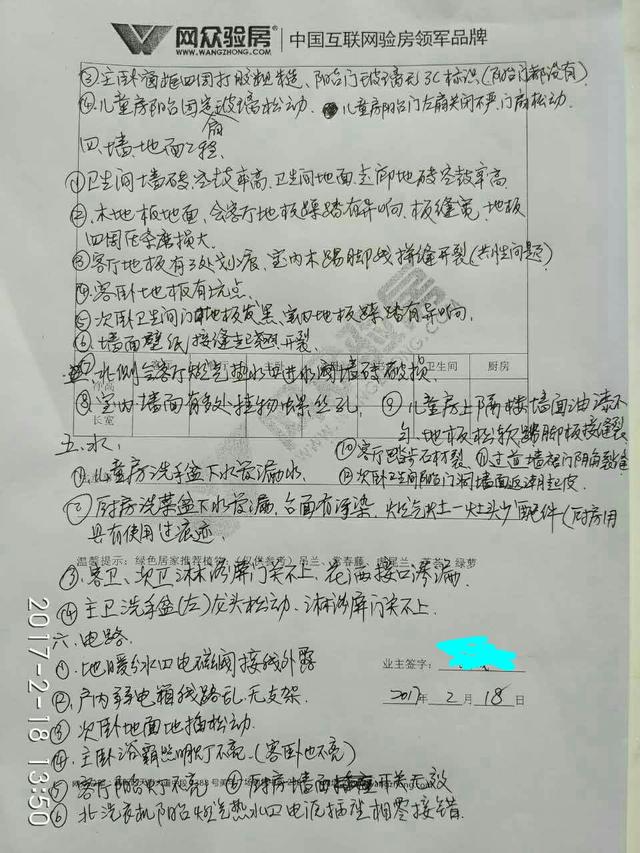 网众验房 中国互联网验房领军品牌
WWW.WANGZHONG.COM
③主卧窗框四周打胶粗糙、阳台门玻璃无3C标识(阳台门都没有)
④儿童房阳台固定扇玻璃松动. 儿童房阳台门左扇关闭不严,门扇松动.
四.墙.地面工程
①卫生间墙砖,空鼓率高.卫生间地面.走廊地砖空鼓率高.
②.木地板地面.会客厅地板踩踏有异响.板缝宽,地板
四周压条磨损大.
③客厅地板有3处划痕,室内木踢脚线拼缝开裂(共性问题)
④.客卧地板有坑点.
⑤次卧卫生间门口地板发黑.室内地板踩踏有异响.
⑥.墙面壁纸接缝开裂
卫生间 厨房
⑦北侧会客厅燃气热水口进水阀墙砖破损.
长宽
⑧室内墙面有多处植物虫丝孔. ⑨儿童房上隔楼墙面油漆不
匀.地板松软踢脚板接缝裂
五.水.
⑩客厅踏步石材裂.⑪过道墙裙门阴角裂缝
①儿童房洗手盆下水管漏水. ⑫次卧卫生间阳台门洞墙面返潮起皮
②厨房洗菜盆下水管漏,台面有污染,燃气灶一灶头少配件(厨房用
具有使用过痕迹.
温馨提示:绿色居家推荐植物:(仅供参考)吊兰、常春藤、虎尾兰、芦荟、绿萝
③.客卫、次卫淋浴屏门关不上,花洒接口渗漏.
④主卫洗手盆(左)龙头松动.淋浴屏门关不上.
六.电路.
业主签字:
①.地暖分水口电磁阀接线外露
2017年 2 月 18 日
②.户内弱电箱线路乱.无支架.
③次卧地面地插松动.
④.主卧浴霸照明灯不亮.(客卧也不亮)
⑤客厅阳台灯不亮 ⑥厨房墙面开关无效
⑥北洗衣机阳台燃气热水口电源插座相零接错.
2017-2-18 13:50